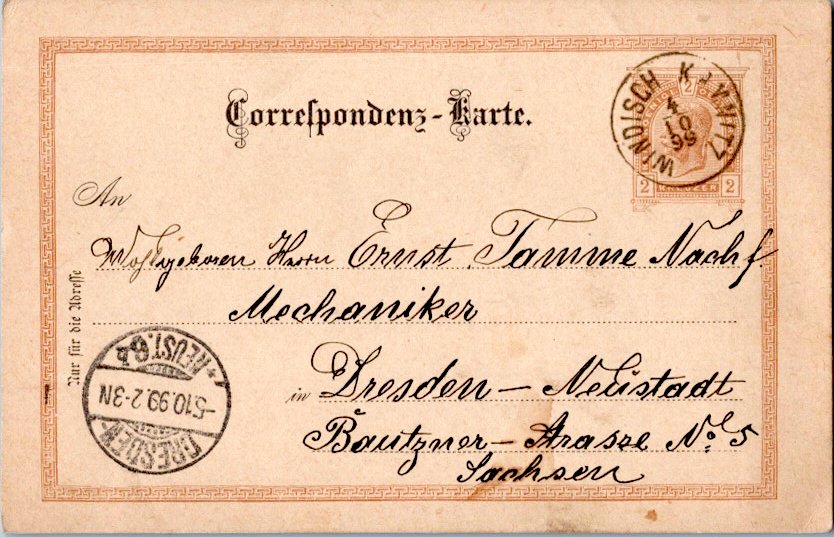 Correspondenz-Karte.
WINDISCH KAMNITZ
4
10
99
2
2 KREUZER 2
An
Wohlgeboren Herrn Ernst Tamme Nachf
Mechaniker
Nur für die Adresse
in Dresden – Neustadt
Bautzner – Strasse No 5
Sachsen
DRESDEN-
-5.10.99.2-3N
NEUST.